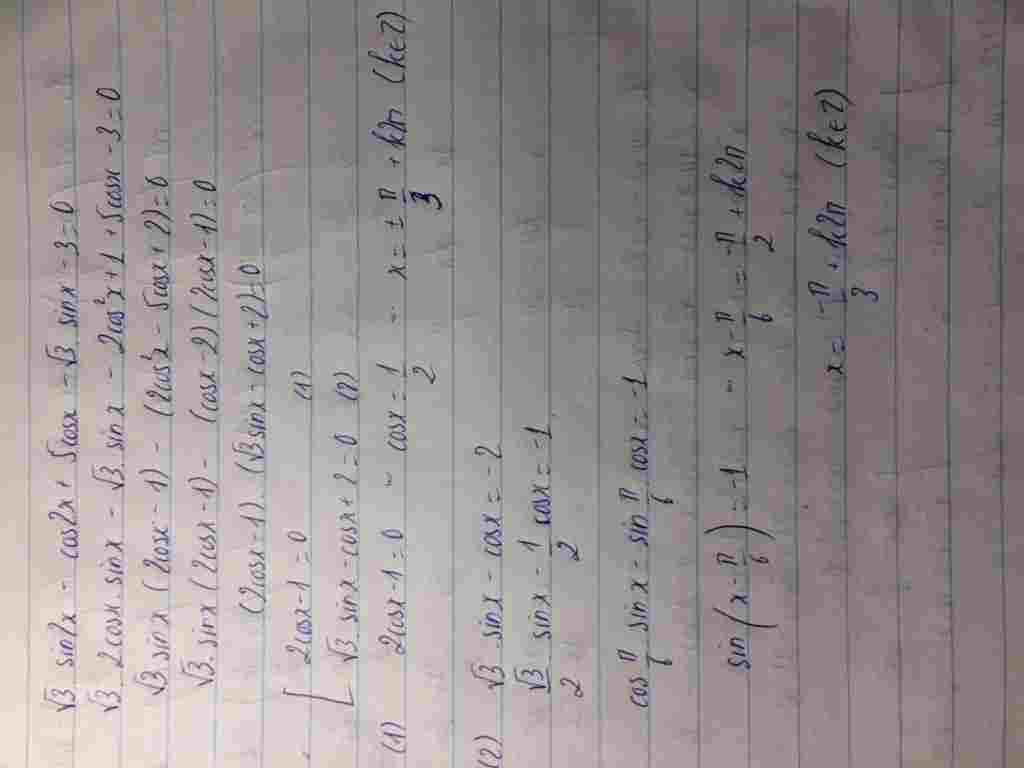 √3 sin2x - cos2x + 5cosx - √3 sinx - 3 = 0
√3. 2cosx. sinx - √3. sinx - 2cos²x + 1 + 5cosx - 3 = 0
√3 sinx (2cosx - 1) - (2cos²x - 5cosx + 2) = 0
√3. sinx (2cosx - 1) - (cosx - 2)(2cosx - 1) = 0
(2cosx - 1). (√3 sinx - cosx + 2) = 0
[ 2cosx - 1 = 0 (1)
√3. sinx - cosx + 2 = 0 (2)
(1) 2cosx - 1 = 0 - cosx = 1/2 - x = ± π/3 + k2π (k∈Z)
(2) √3. sinx - cosx = -2
√3/2 sinx - 1/2 cosx = -1
cos π/6 . sinx - sin π/6 cosx = -1
sin(x - π/6) = -1 - x - π/6 = -π/2 + k2π
x = -π/3 + k2π (k∈Z)